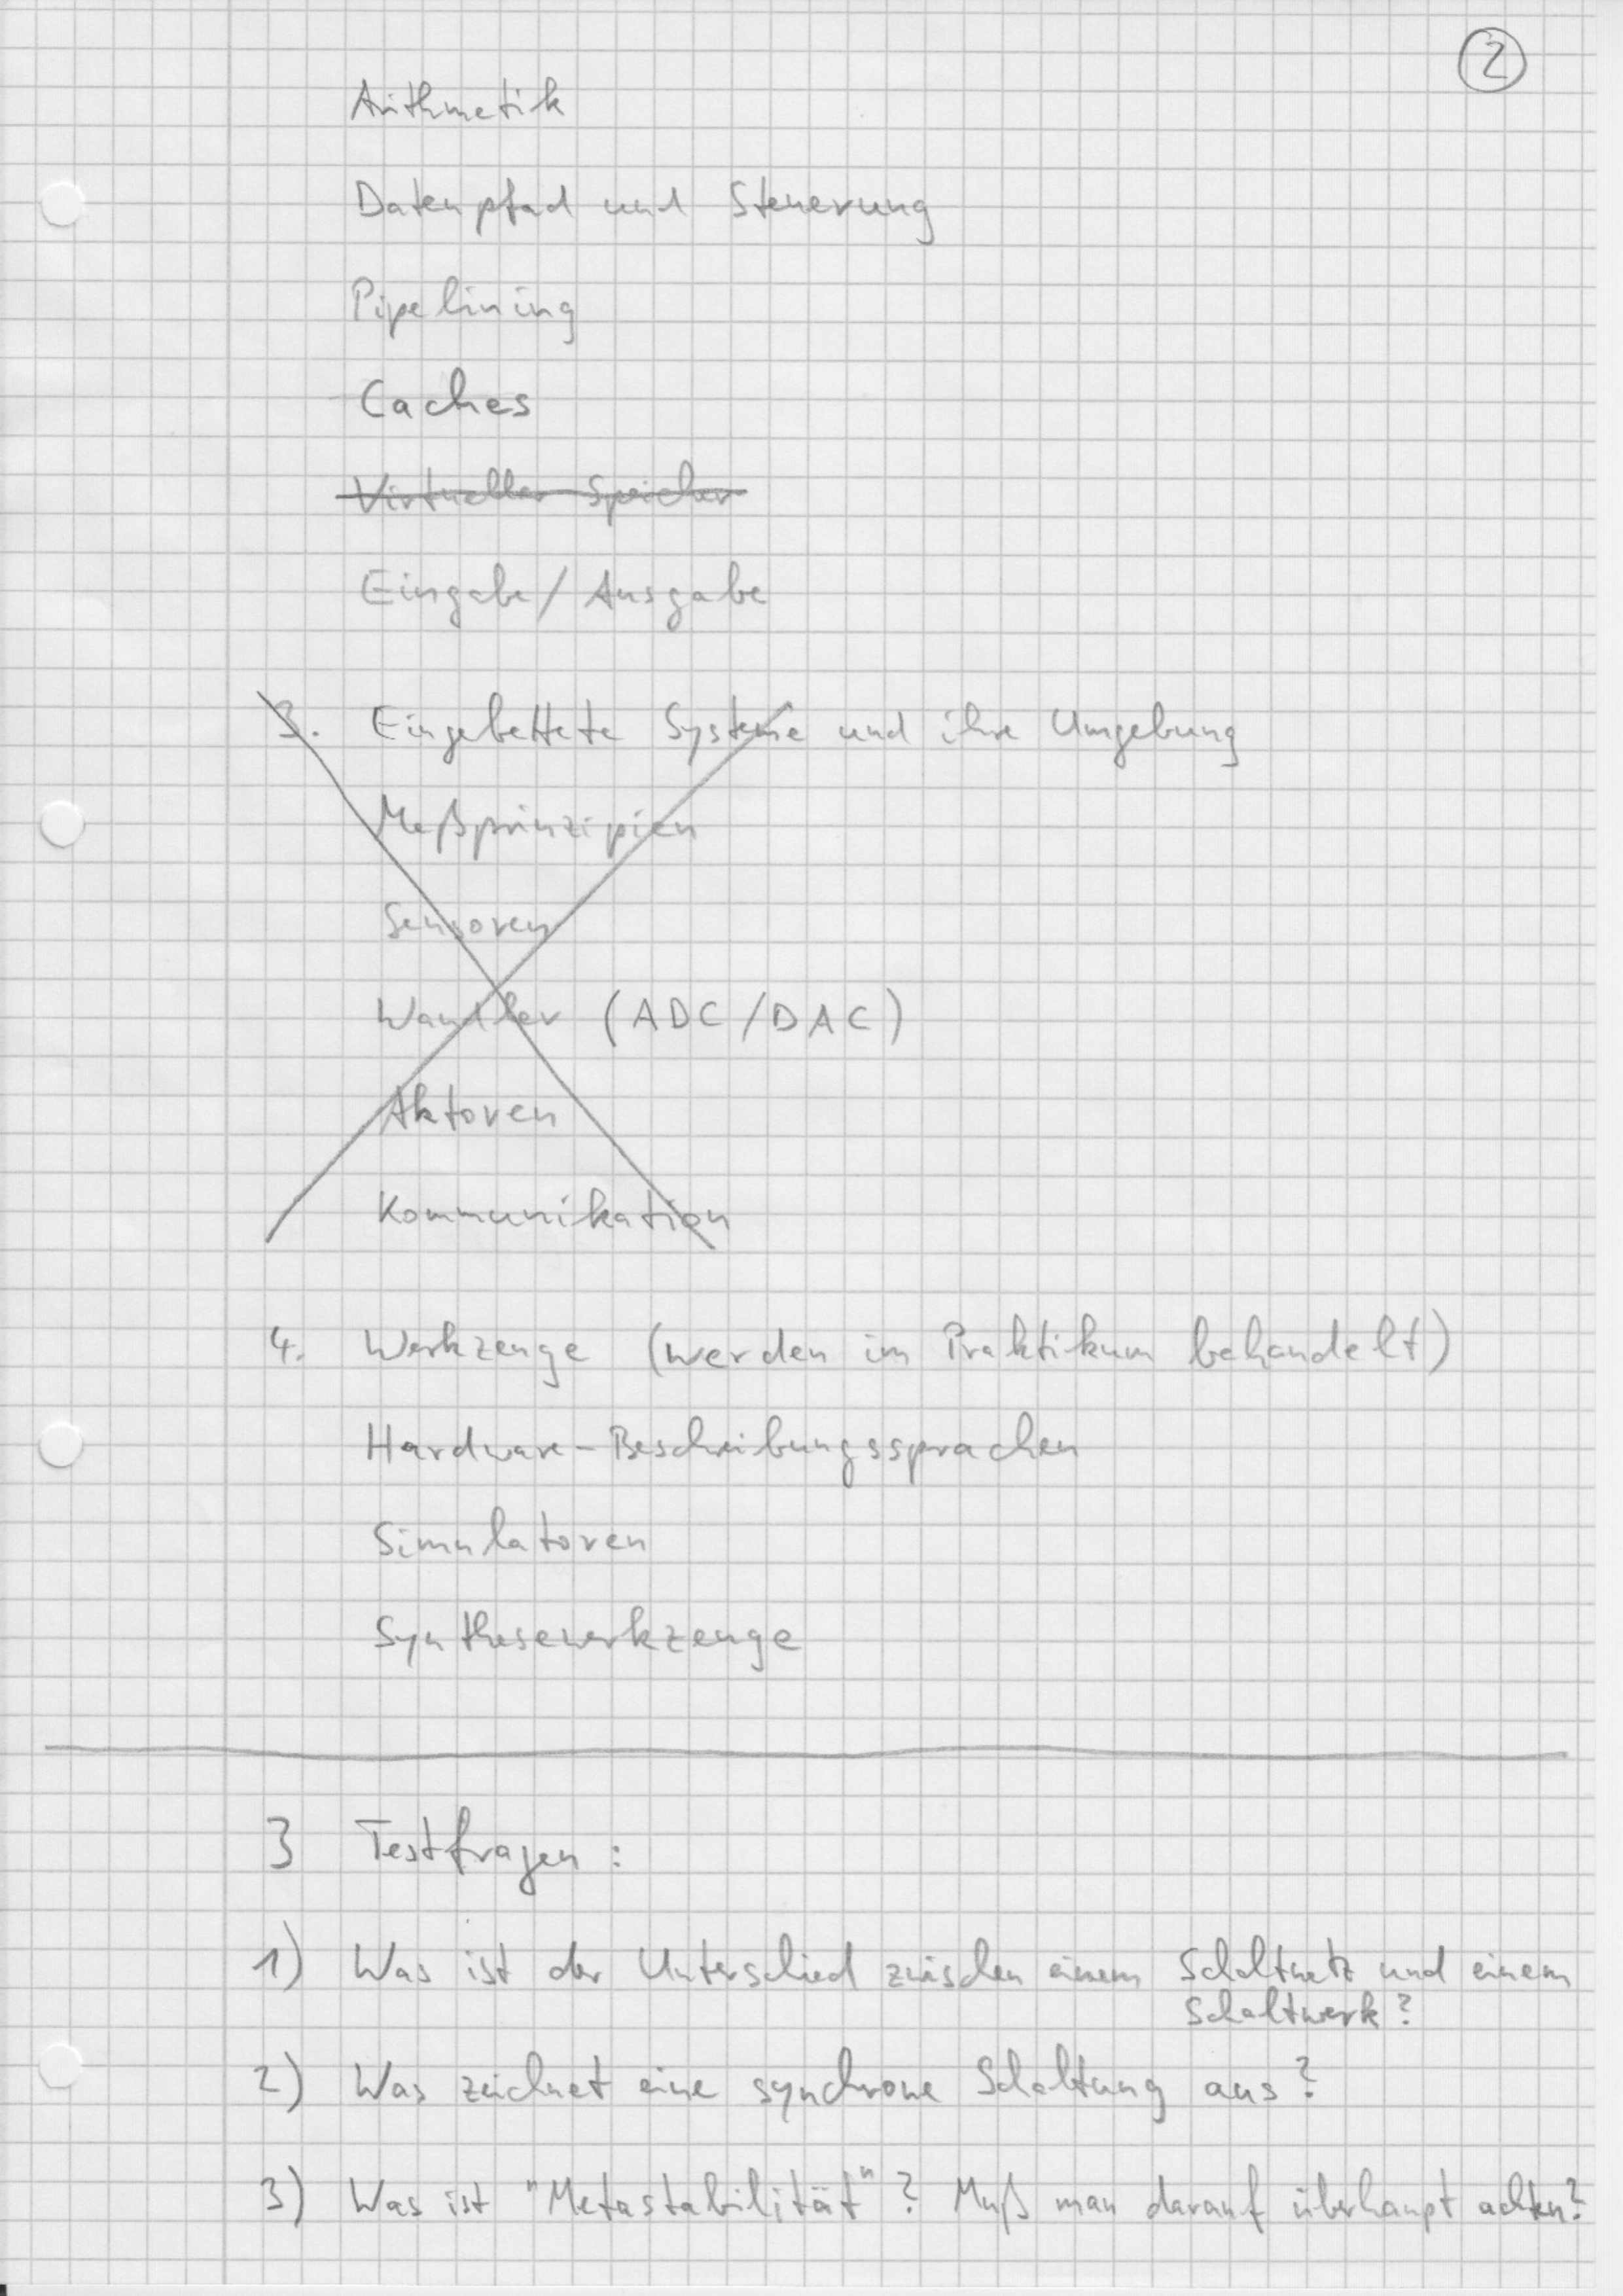 2
Arithmetik
Datenpfad und Steuerung
Pipelining
Caches
Virtueller Speicher
Eingabe/Ausgabe
3. Eingebettete Systeme und ihre Umgebung
Meßprinzipien
Sensoren
Wandler (ADC/DAC)
Aktoren
Kommunikation
4. Werkzeuge (werden im Praktikum behandelt)
Hardware-Beschreibungssprachen
Simulatoren
Synthesewerkzeuge
3 Testfragen:
1) Was ist der Unterschied zwischen einem Schaltnetz und einem
Schaltwerk?
2) Was zeichnet eine synchrone Schaltung aus?
3) Was ist "Metastabilität"? Muß man darauf überhaupt achten?